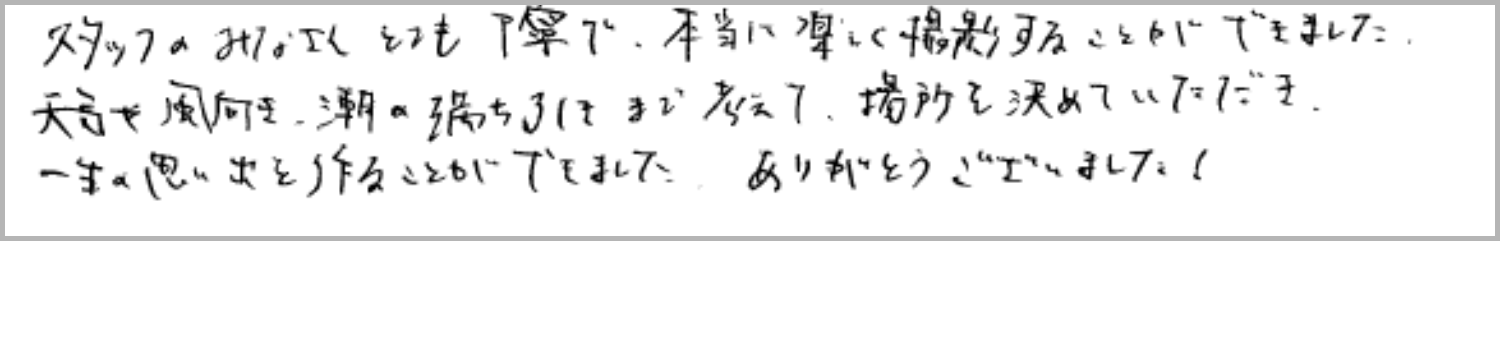 スタッフのみなさんとても丁寧で、本当に楽しく撮影することができました。
天気や風向き、潮の満ち引きまで考えて、場所を決めていただき、
一生の思い出を作ることができました。ありがとうございました！